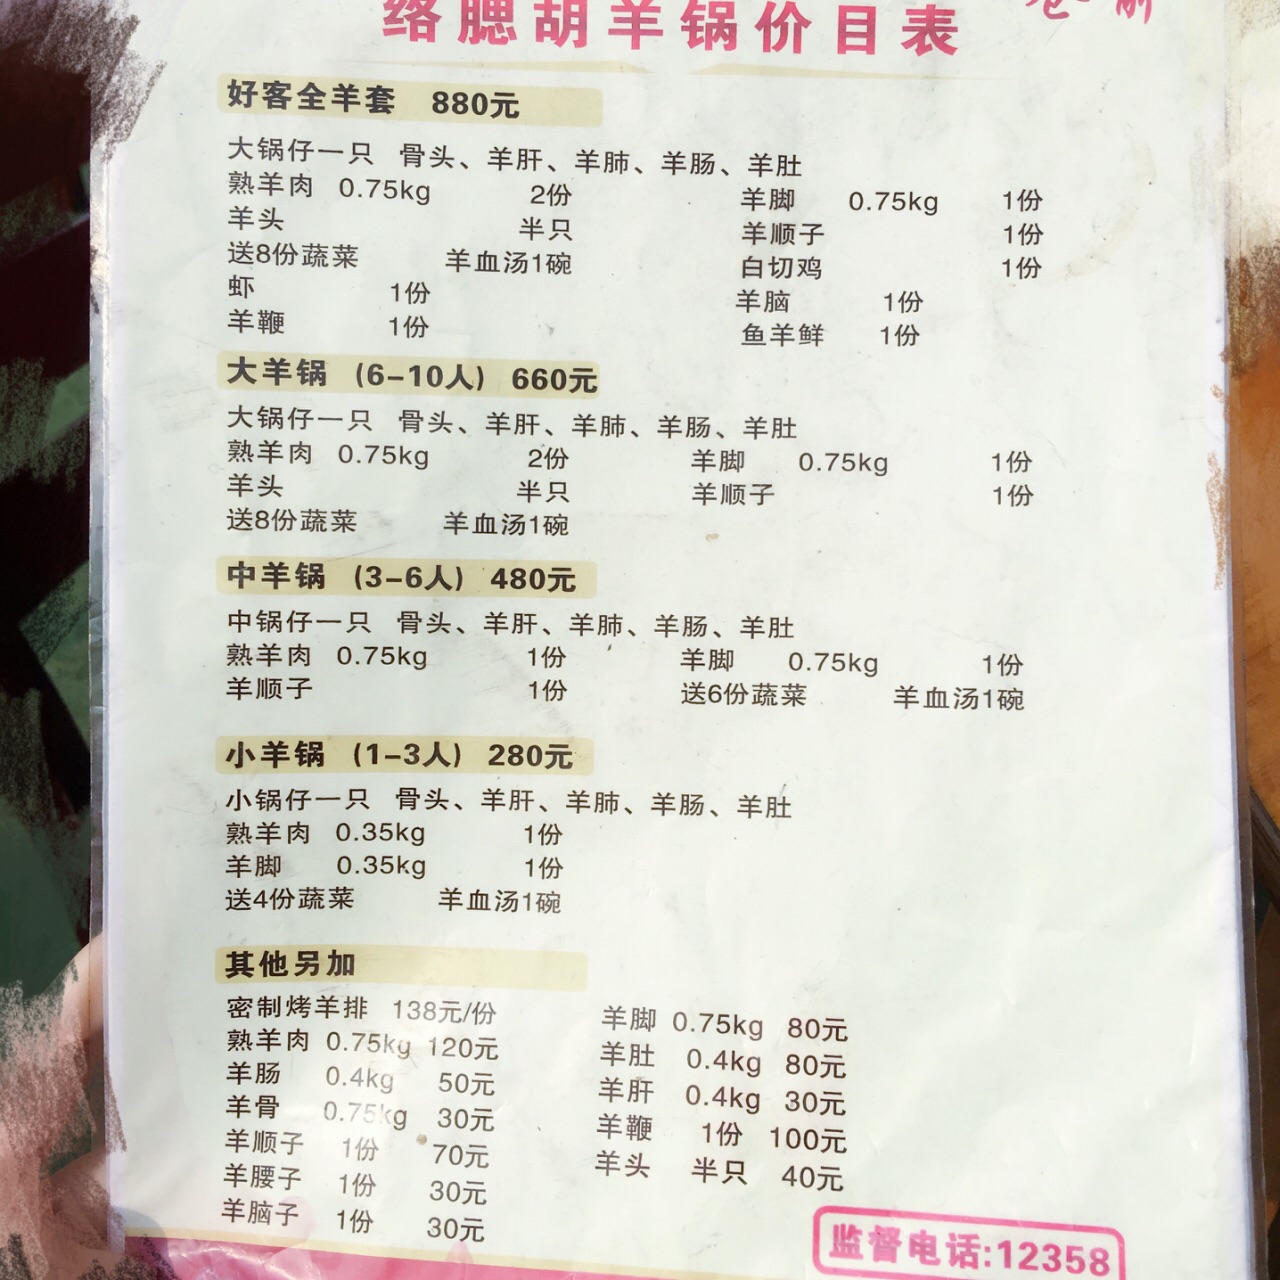 络腮胡羊锅价目表
好客全羊套 880元
大锅仔一只 骨头、羊肝、羊肺、羊肠、羊肚
熟羊肉 0.75kg 2份 羊脚 0.75kg 1份
羊头 半只 羊顺子 1份
送8份蔬菜 羊血汤1碗 白切鸡 1份
虾 1份 羊脑 1份
羊鞭 1份 鱼羊鲜 1份
大羊锅 (6-10人) 660元
大锅仔一只 骨头、羊肝、羊肺、羊肠、羊肚
熟羊肉 0.75kg 2份 羊脚 0.75kg 1份
羊头 半只 羊顺子 1份
送8份蔬菜 羊血汤1碗
中羊锅 (3-6人) 480元
中锅仔一只 骨头、羊肝、羊肺、羊肠、羊肚
熟羊肉 0.75kg 1份 羊脚 0.75kg 1份
羊顺子 1份 送6份蔬菜 羊血汤1碗
小羊锅 (1-3人) 280元
小锅仔一只 骨头、羊肝、羊肺、羊肠、羊肚
熟羊肉 0.35kg 1份
羊脚 0.35kg 1份
送4份蔬菜 羊血汤1碗
其他另加
密制烤羊排 138元/份 羊脚 0.75kg 80元
熟羊肉 0.75kg 120元 羊肚 0.4kg 80元
羊肠 0.4kg 50元 羊肝 0.4kg 30元
羊骨 0.75kg 30元 羊鞭 1份 100元
羊顺子 1份 70元 羊头 半只 40元
羊腰子 1份 30元
羊脑子 1份 30元
监督电话:12358